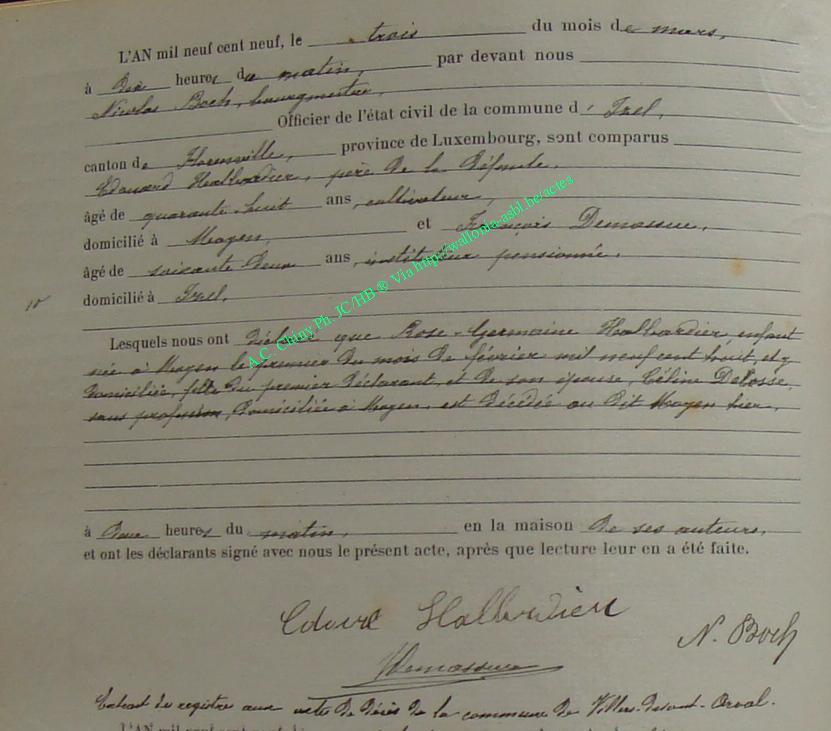 L'AN mil neuf cent neuf, le trois du mois de mars,
à dix heures du matin, par devant nous
Nicolas Boch, bourgmestre,
Officier de l'état civil de la commune d'Izel,
canton de Florenville, province de Luxembourg, sont comparus
Edouard Halbardier, père de la défunte,
âgé de quarante-huit ans, cultivateur,
domicilié à Moyen, et François Demasure,
âgé de soixante deux ans, instituteur pensionné,
domicilié à Izel,
10
Lesquels nous ont déclaré que Rose-Germaine Halbardier, enfant
née à Moyen le premier du mois de février mil neuf cent huit, et y
domiciliée, fille du premier déclarant, et de son épouse, Céline Delosse,
sans profession, domiciliée à Moyen, est décédée au dit Moyen hier,
à deux heures du matin, en la maison de ses auteurs,
et ont les déclarants signé avec nous le présent acte, après que lecture leur en a été faite.
Halbardier
N. Boch
Demasure
Extrait du registre aux actes de décès de la commune de Villers-devant-Orval.
A.C. Chiny Ph. JC/HB ® Via http://wallonia-asbl.be/actes